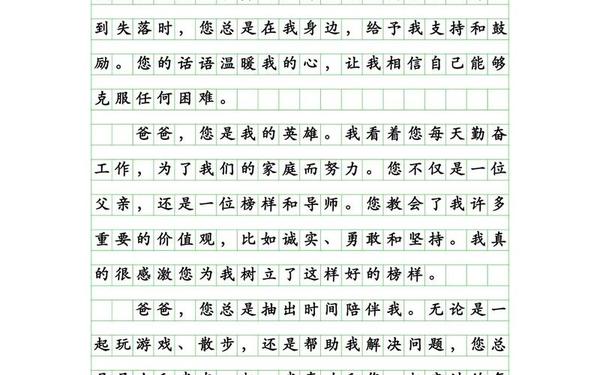 到失落时，您总是在我身边，给予我支持和鼓
励。您的话语温暖我的心，让我相信自己能够
克服任何困难。
爸爸，您是我的英雄。我看着您每天勤奋
工作，为了我们的家庭而努力。您不仅是一位
父亲，还是一位榜样和导师。您教会了我许多
重要的价值观，比如诚实、勇敢和坚持。我真
的很感激您为我树立了这样好的榜样。
爸爸，您总是抽出时间陪伴我。无论是一
起玩游戏、散步，还是帮助我解决问题，您总